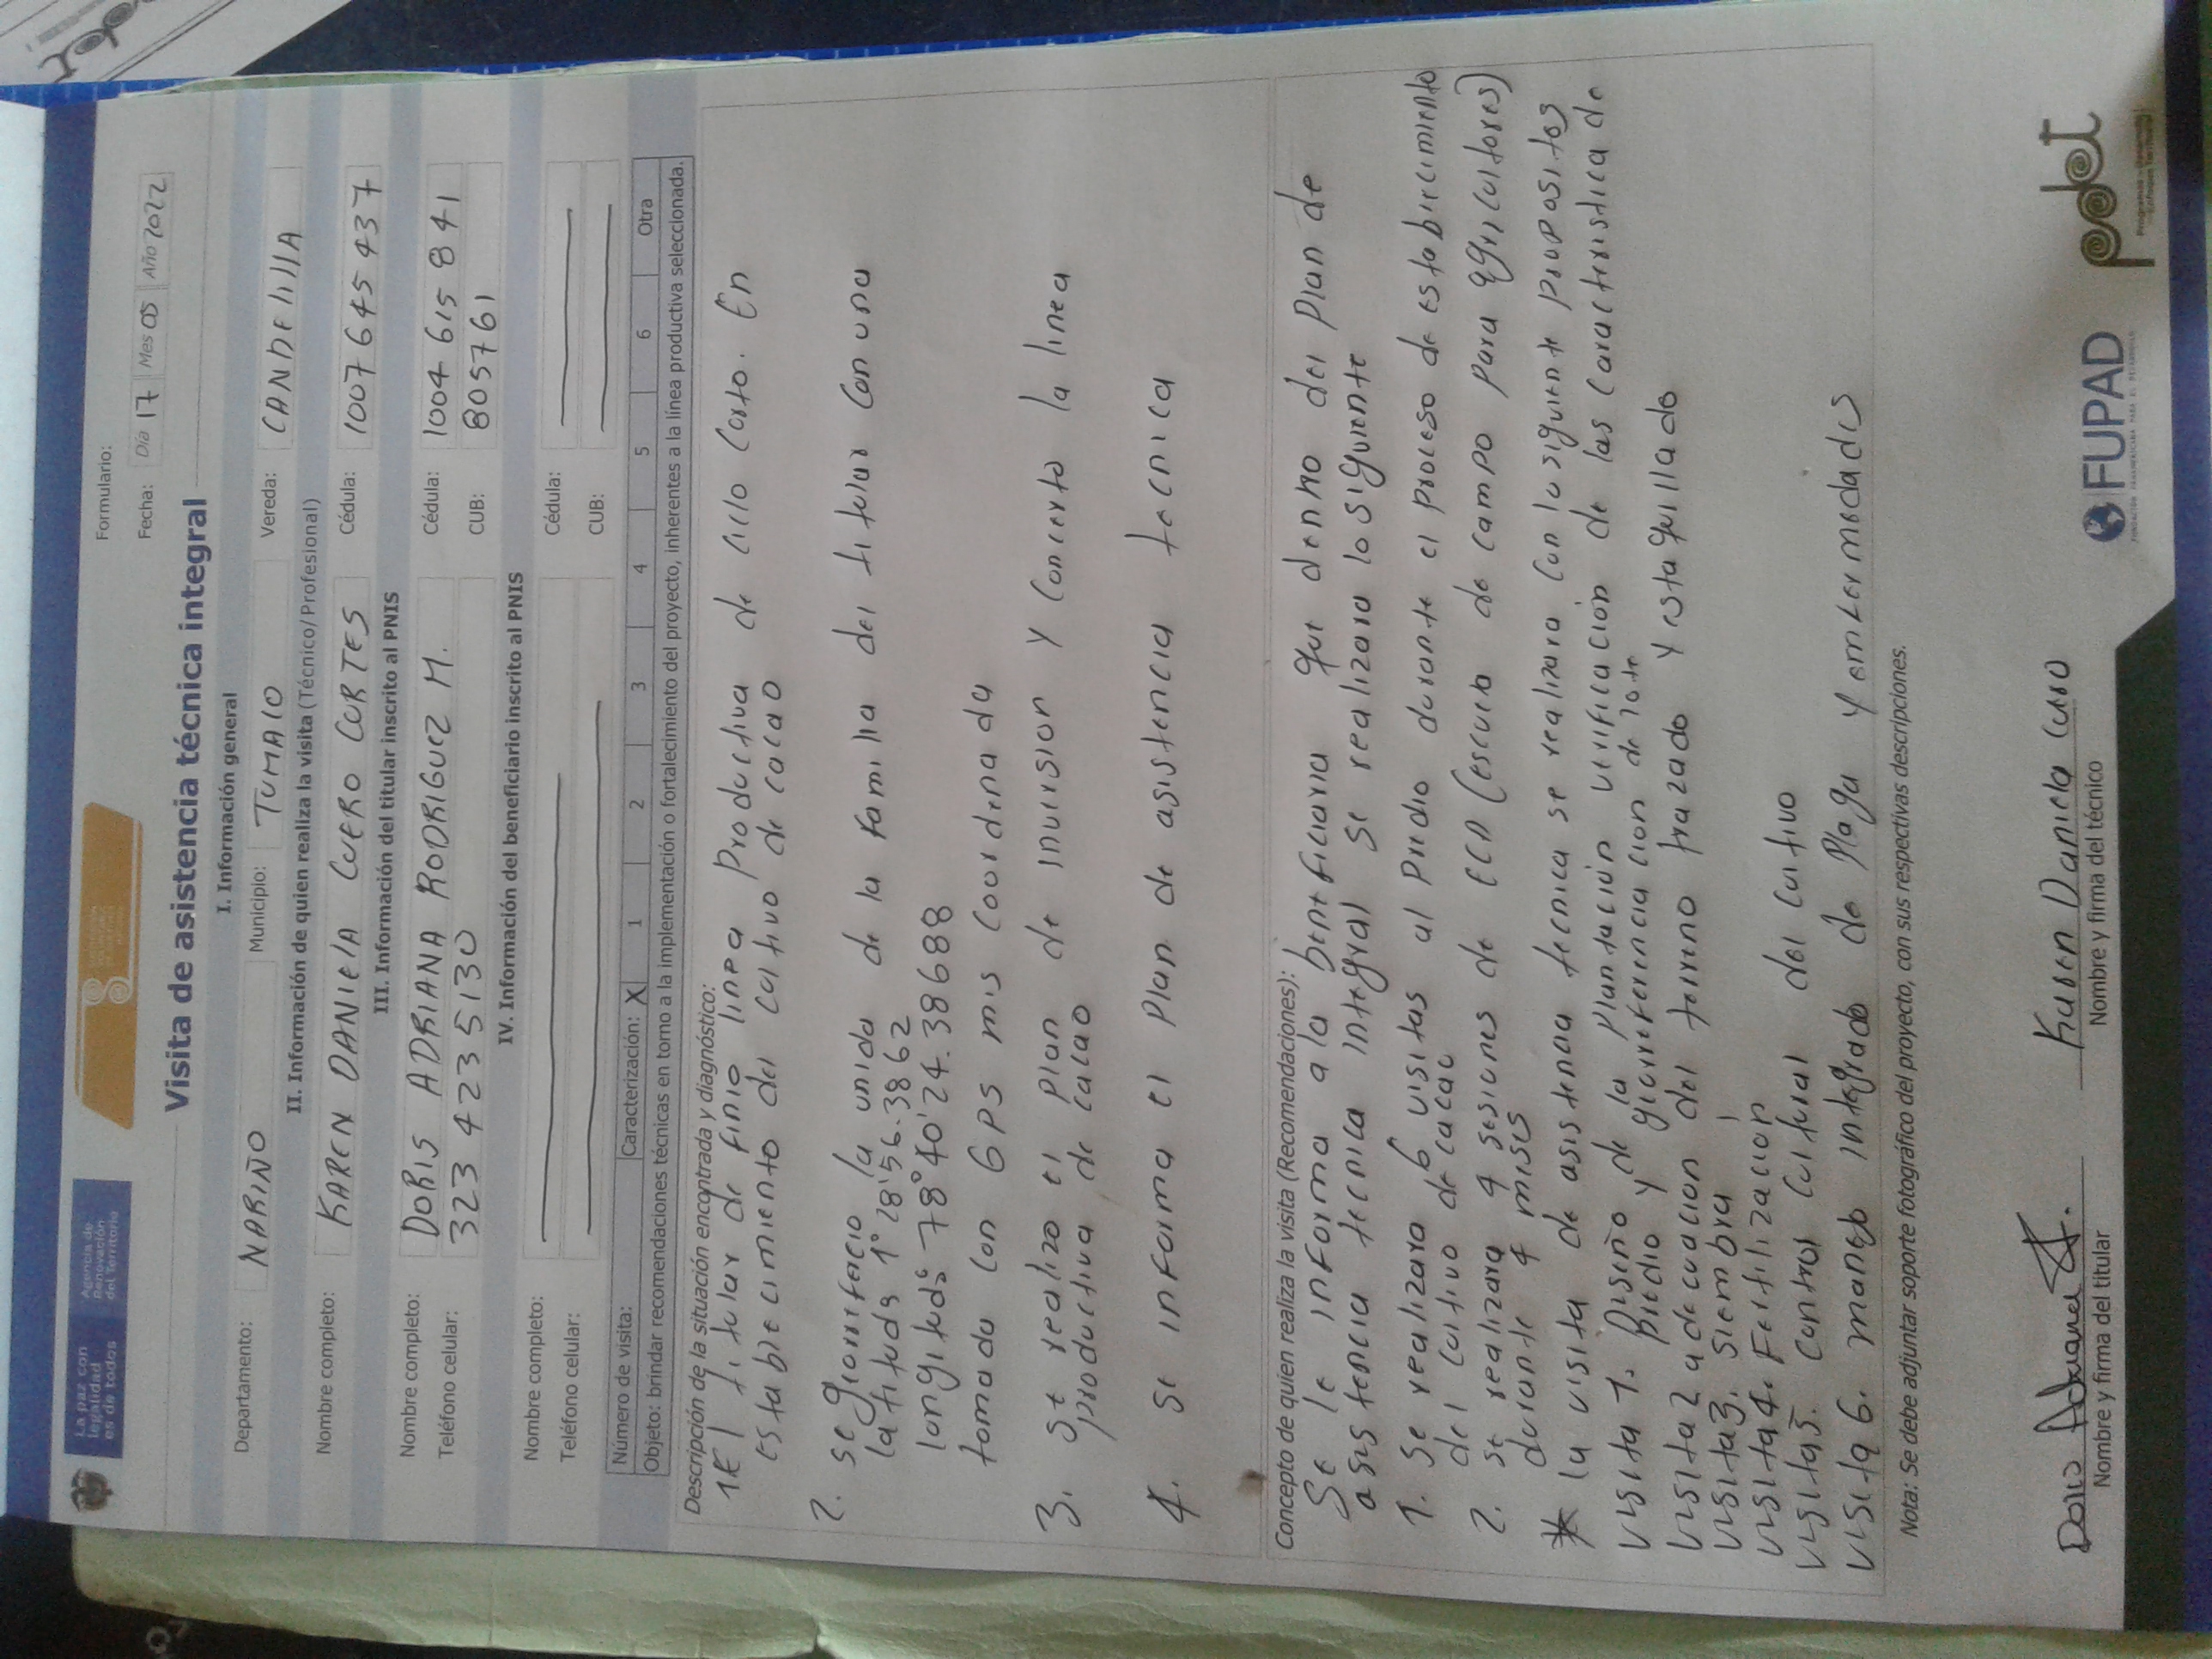 La paz con
legalidad
es de todos
Agencia de
Renovación
del Territorio
Formulario:
Fecha: Día 17 Mes 05 Año 2022
Visita de asistencia técnica integral
I. Información general
Departamento: NARIÑO Municipio: TUMACO Vereda: CANDELILLA
II. Información de quien realiza la visita (Técnico/Profesional)
Nombre completo: KAREN DANIELA CUERO CORTES Cédula: 1007645437
III. Información del titular inscrito al PNIS
Nombre completo: DORIS ADRIANA RODRIGUEZ M. Cédula: 1004615841
Teléfono celular: 3234235130 CUB: 805761
IV. Información del beneficiario inscrito al PNIS
Nombre completo: Cédula:
Teléfono celular: CUB:
Número de visita: Caracterización: X 1 2 3 4 5 6 Otra
Objeto: brindar recomendaciones técnicas en torno a la implementación o fortalecimiento del proyecto, inherentes a la línea productiva seleccionada.
Descripción de la situación encontrada y diagnóstico:
1 El titular definio linea Productiva de ciclo Corto. En
establecimiento del cultivo de cacao
2. se la unida de la familia del titular con una
latituds 1° 28' 56.3862
longituds 78° 40' 24.38688
tomada con GPS mis coordenada
3. se realizo el plan de inversion y Concerto la linea
productiva de cacao
4. se informa el Plan de asistencia tecnica
Concepto de quien realiza la visita (Recomendaciones):
Se le informa a la beneficiaria que dentro del Plan de
asistencia tecnica integral se realizara lo siguiente
1. se realizara 6 visitas al Predio durante el proceso de establecimiento
del cultivo de cacao
2. se realizara 4 sesiones de ECA (escuela de campo para agricultores)
durante 4 meses
* la visita de asistencia tecnica se realizara con lo siguiente propositos
visita 1. Diseño de la Plantación verificación de las caracteristica de
Predio y de lote
visita 2 adecuacion del terreno trazado y estaquillado
visita 3. siembra
visita 4. Fertilizacion
visita 5. Control cultural del cultivo
visita 6. manejo integrado de Plaga y enfermedades
Nota: Se debe adjuntar soporte fotográfico del proyecto, con sus respectivas descripciones.
Doris Adriana
Nombre y firma del titular
Karen Daniela Cuero
Nombre y firma del técnico
FUPAD
FUNDACIÓN PANAMERICANA PARA EL DESARROLLO
pdet
Programas de Desarrollo
con Enfoque Territorial